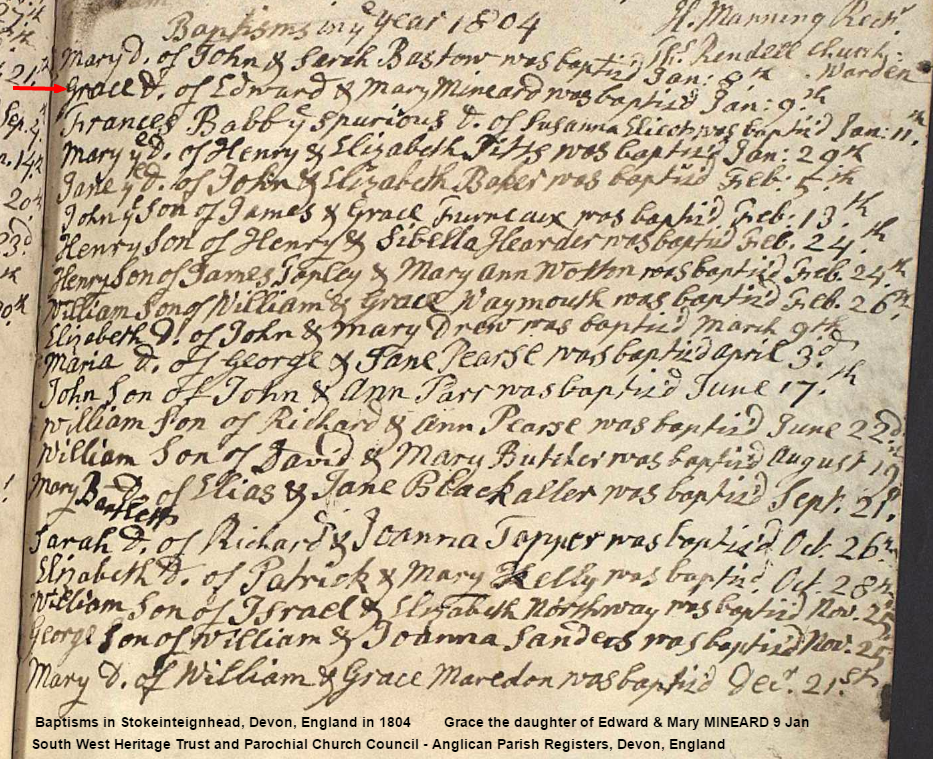 Baptisms in yᵉ year 1804
H. Manning Rectʳ
Thˢ Rendell Church-
Warden
Mary D. of John & Sarah Bastow was baptiz'd Jan: 8ᵗʰ
21ᵗʰ
Grace D. of Edward & Mary Mineard was baptiz'd Jan: 9.ᵗʰ
Sep.
Frances Babb yᵉ spurious D. of Susanna Elicot was baptiz'd Jan: 11.ᵗʰ
14ᵗʰ
Mary yᵉ D. of Henry & Elizabeth Pitts was baptiz'd Jan: 29ᵗʰ
20ᵗʰ
Jane yᵉ D. of John & Elizabeth Baker was baptiz'd Feb. 5ᵗʰ
John yᵉ Son of James & Grace Furneaux was baptiz'd Feb. 13.ᵗʰ
23ᵈ
Henry Son of Henry & Sibella Hearder was baptiz'd Feb. 24.ᵗʰ
Henry Son of James Tapley & Mary Ann Wotton was baptiz'd Feb. 24.ᵗʰ
William Son of William & Grace Waymouth was baptiz'd Feb. 26ᵗʰ
Elizabeth D. of John & Mary Drew was baptiz'd March 9ᵗʰ
Maria D. of George & Jane Pearse was baptiz'd April 3ᵈ
John Son of John & Ann Parr was baptiz'd June 17.ᵗʰ
William Son of Richard & Ann Pearse was baptiz'd June 22ᵈ
William Son of David & Mary Butcher was baptiz'd August 19
Mary Bartlett D. of Elias & Jane Blackaller was baptiz'd Sept. 21ˢᵗ
Sarah D. of Richard & Joanna Tapper was baptiz'd Oct. 26ᵗʰ
Elizabeth D. of Patrick & Mary Kelly was baptiz'd Oct. 28ᵗʰ
William Son of Israel & Elizabeth Northway was baptiz'd Nov. 25
George Son of William & Joanna Sanders was baptiz'd Nov. 25
Mary D. of William & Grace Maredon was baptiz'd Decʳ. 21.ˢᵗ
Baptisms in Stokeinteignhead, Devon, England in 1804 Grace the daughter of Edward & Mary MINEARD 9 Jan
South West Heritage Trust and Parochial Church Council - Anglican Parish Registers, Devon, England